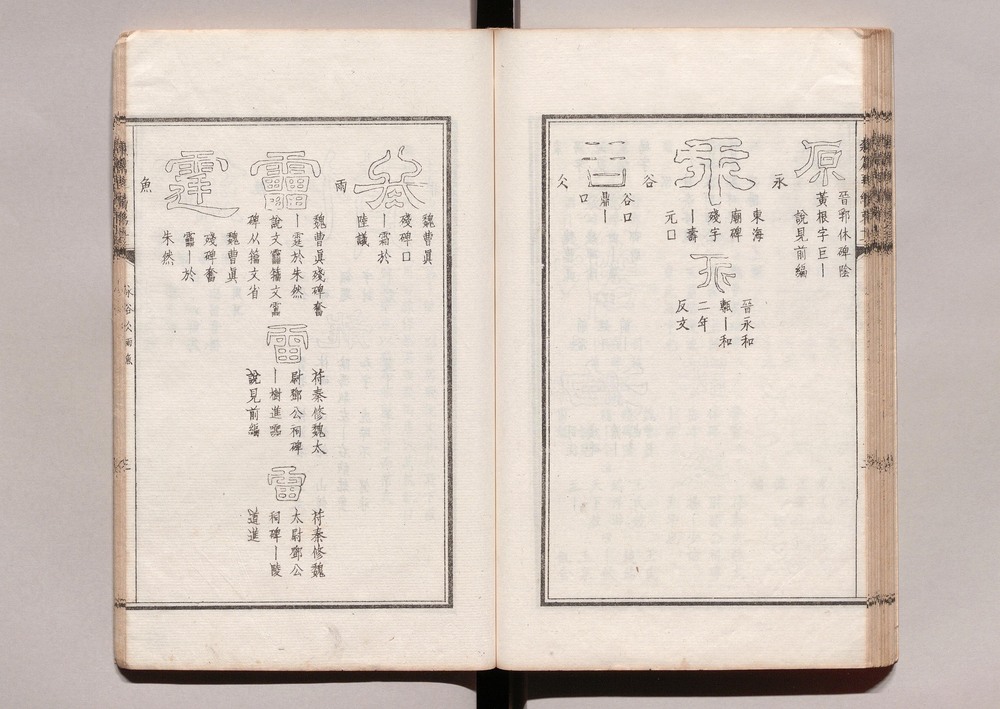 原
晉郛休碑陰
黃根字巨｜
說見前編
永
東海
廟碑
殘字
｜壽
元口
晉永和
甎｜和
二年
反文
谷
谷口
鼎｜
口
仌
魏曹眞
殘碑口
｜霜於
陸議
雨
魏曹眞殘碑奮
｜霆於朱然
說文靁籒文䨓
碑从籒文省
雷
苻秦修魏太
尉鄧公祠碑
｜樹進
說見前編
雷
苻秦修魏
太尉鄧公
祠碑｜陵
道進
霆
魏曹眞
殘碑奮
靁｜於
朱然
魚
永谷仌雨魚